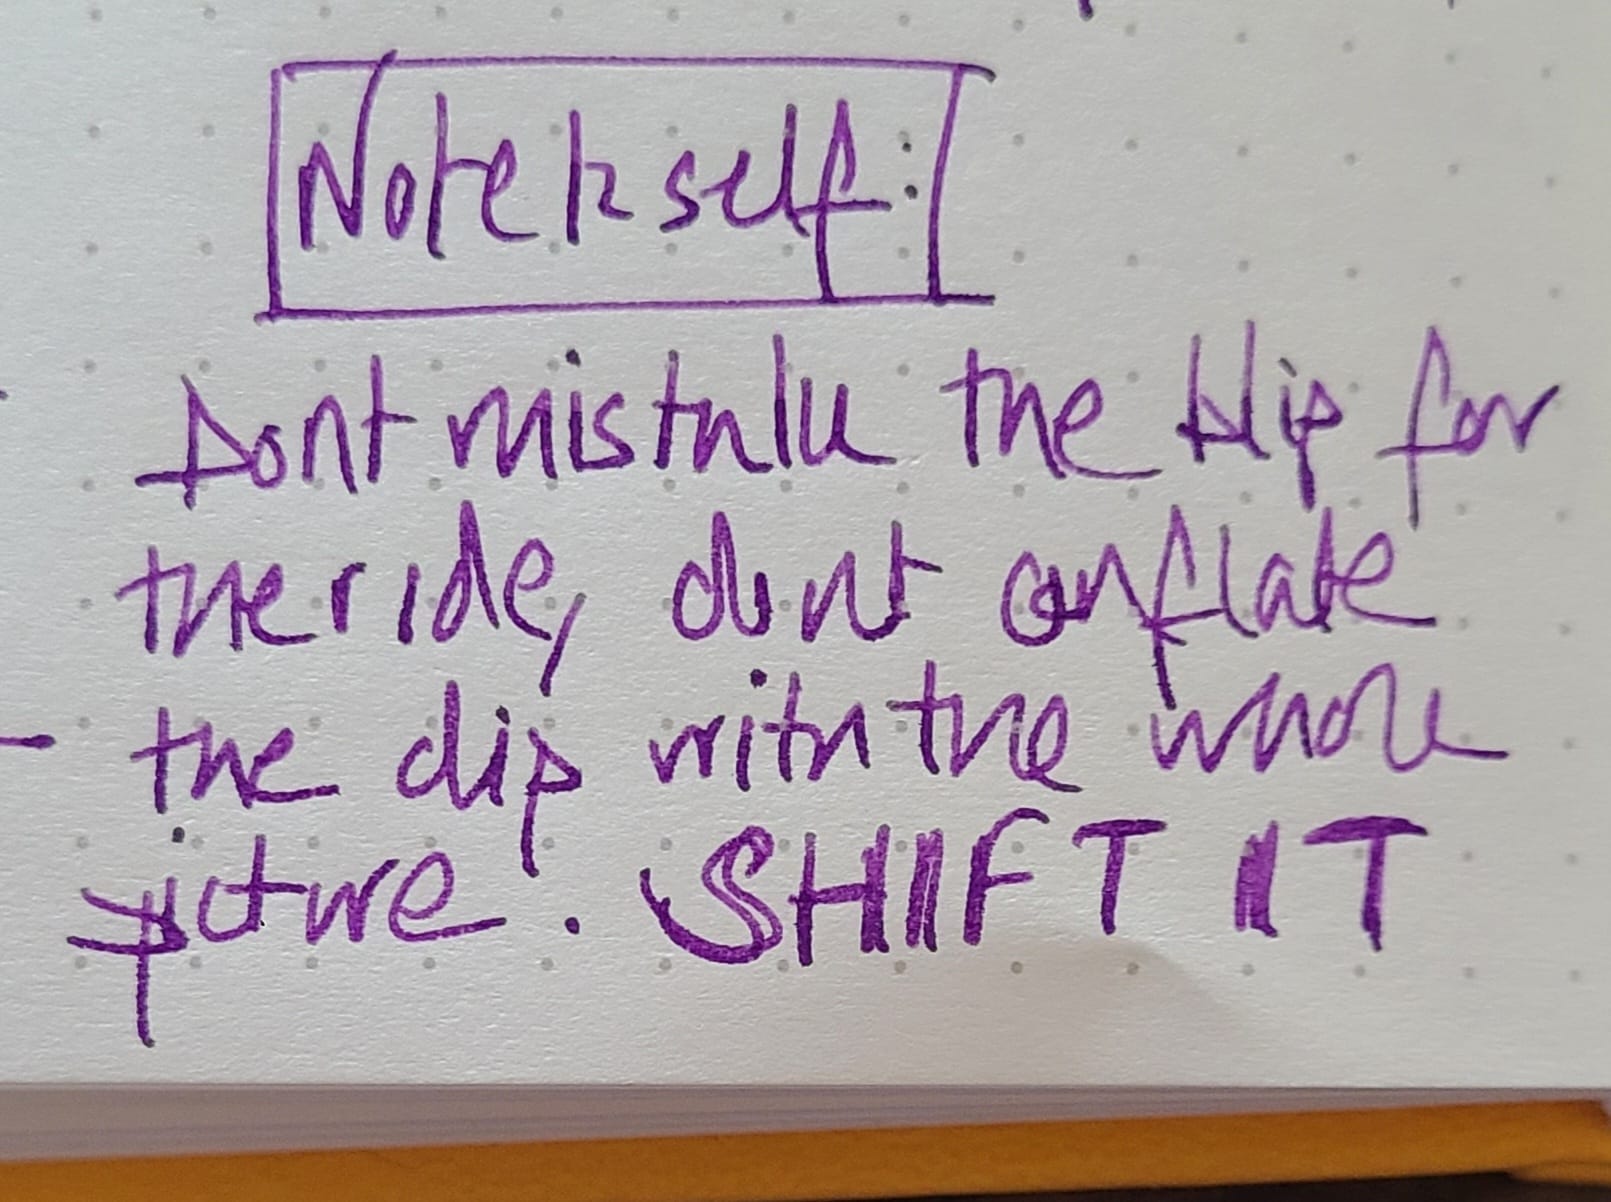 Note to self:
Dont mistake the blip for
the ride, dont conflate
the dip with the whole
picture. SHIFT IT